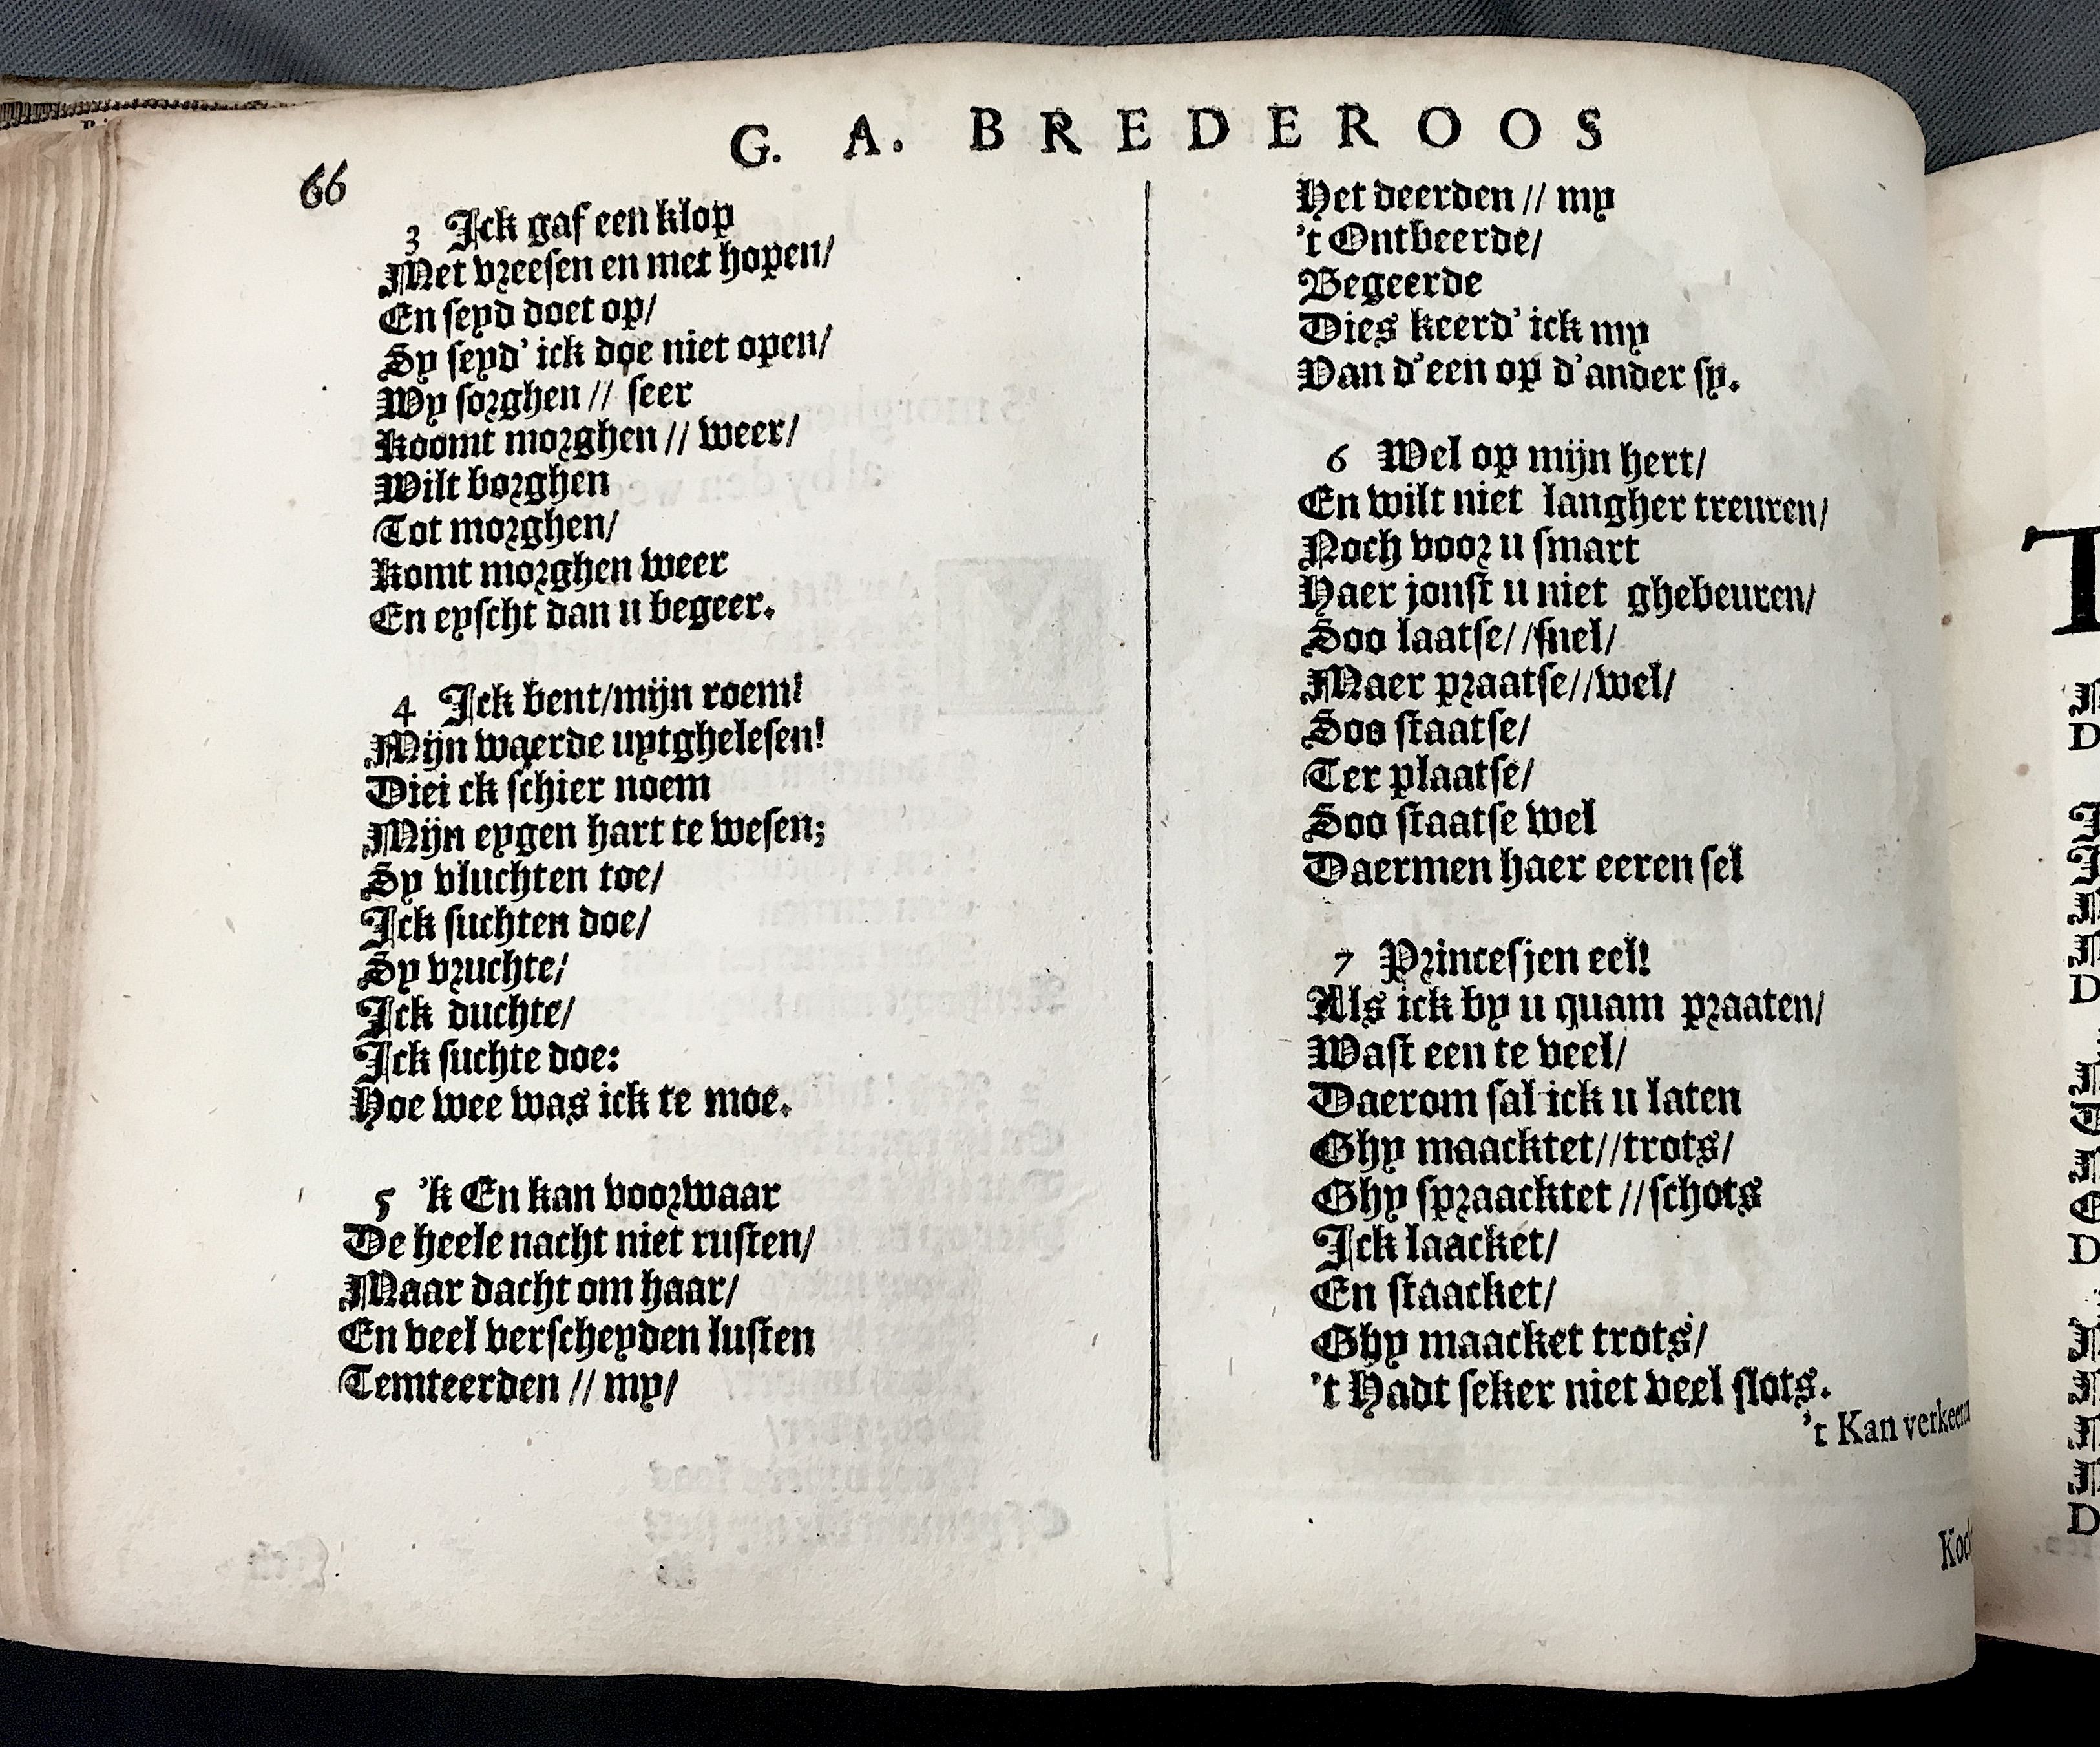 G. A. BREDEROOS
66
3 Ick gaf een klop
Met vreesen en met hopen/
En seyd doet op/
Sy seyd' ick doe niet open/
Wy sorghen // seer
Koomt morghen // weer/
Wilt borghen
Tot morghen/
Komt morghen weer
En eyscht dan u begeer.
4 Ick bent/mijn roem!
Mijn waerde uytghelesen!
Diei ck schier noem
Mijn eygen hart te wesen;
Sy vluchten toe/
Ick suchten doe/
Sy vruchte/
Ick duchte/
Ick suchte doe:
Hoe wee was ick te moe.
5 'k En kan voorwaar
De heele nacht niet rusten/
Maar dacht om haar/
En veel verscheyden lusten
Temteerden // my/
Het deerden // my
't Ontbeerde/
Begeerde
Dies keerd' ick my
Van d'een op d'ander sy.
6 Wel op mijn hert/
En wilt niet langher treuren/
Noch voor u smart
Haer jonst u niet ghebeuren/
Soo laatse//snel/
Maer praatse//wel/
Soo staatse/
Ter plaatse/
Soo staatse wel
Daermen haer eeren sel
7 Princesjen eel!
Als ick by u quam praaten/
Wast een te veel/
Daerom sal ick u laten
Ghy maacktet//trots/
Ghy spraacktet //schots
Ick laacket/
En staacket/
Ghy maacket trots/
't Hadt seker niet veel slots.
't Kan verkeeren